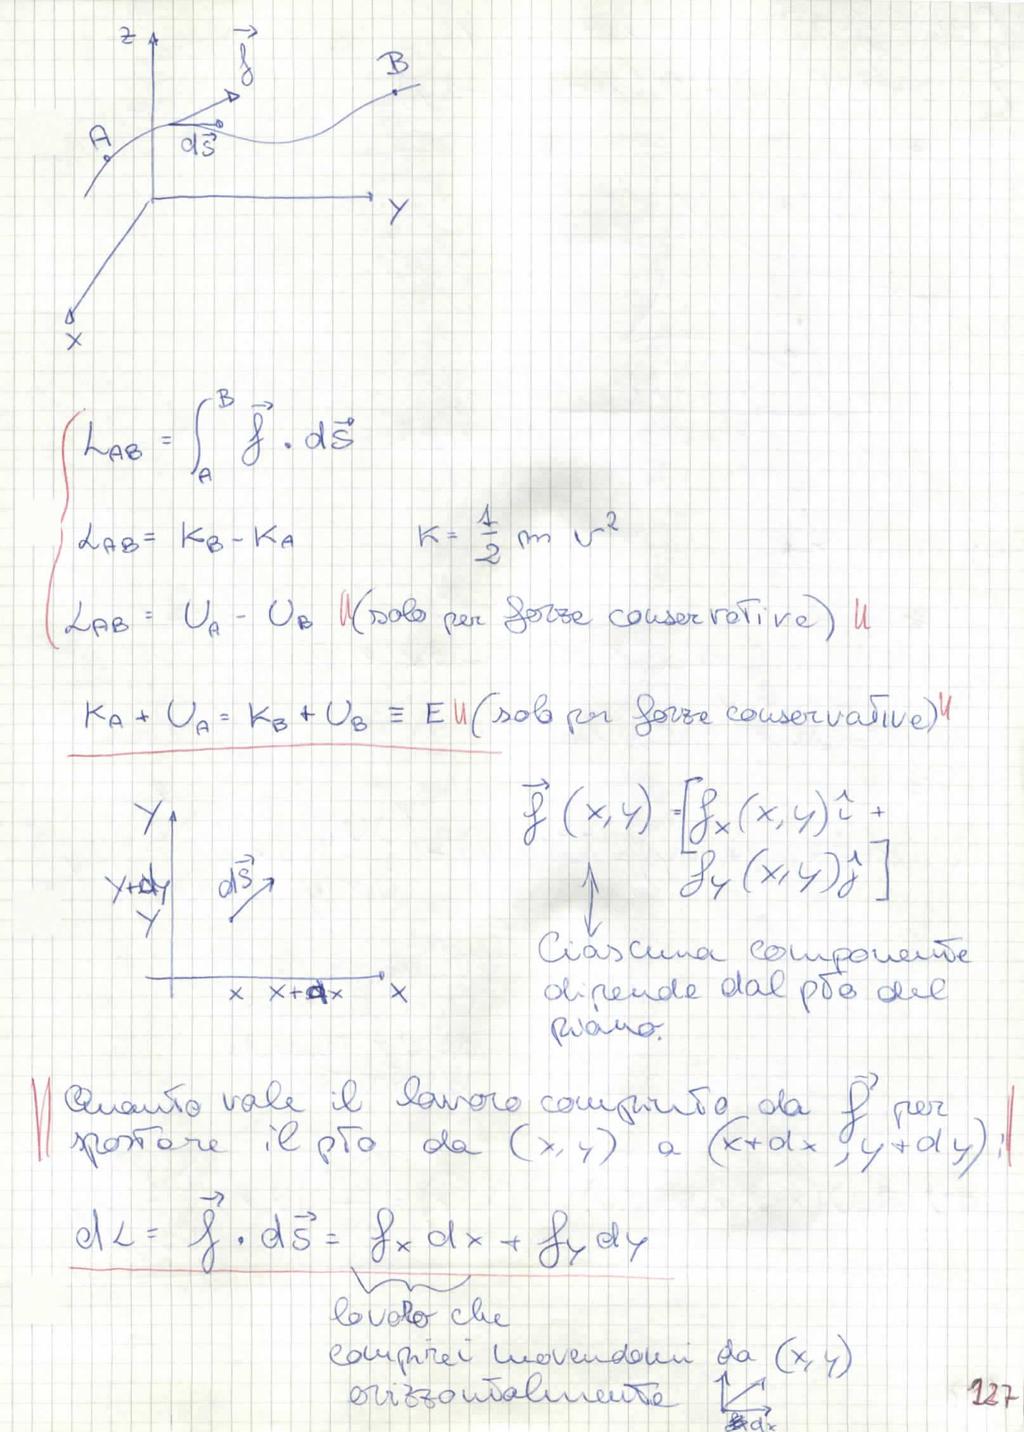 Z
f⃗
B
A
ds⃗
Y
X
L_AB = ∫_A^B f⃗ · ds⃗
L_AB = K_B - K_A K = 1/2 m v²
L_AB = U_A - U_B "(solo per forze conservative)"
K_A + U_A = K_B + U_B ≡ E "(solo per forze conservative)"
f⃗ (x,y) = [f_x (x,y) î +
f_y (x,y) ĵ]
Y
y+dy
ds⃗
y
x x+dx X
Ciascuna componente
dipende dal pto del
piano.
Quanto vale il lavoro compiuto da f⃗ per
spostare il pto da (x,y) a (x+dx, y+dy);
dL = f⃗ · ds⃗ = f_x dx + f_y dy
lavoro che
compirei muovendomi da (x,y)
orizzontalmente
dx
127